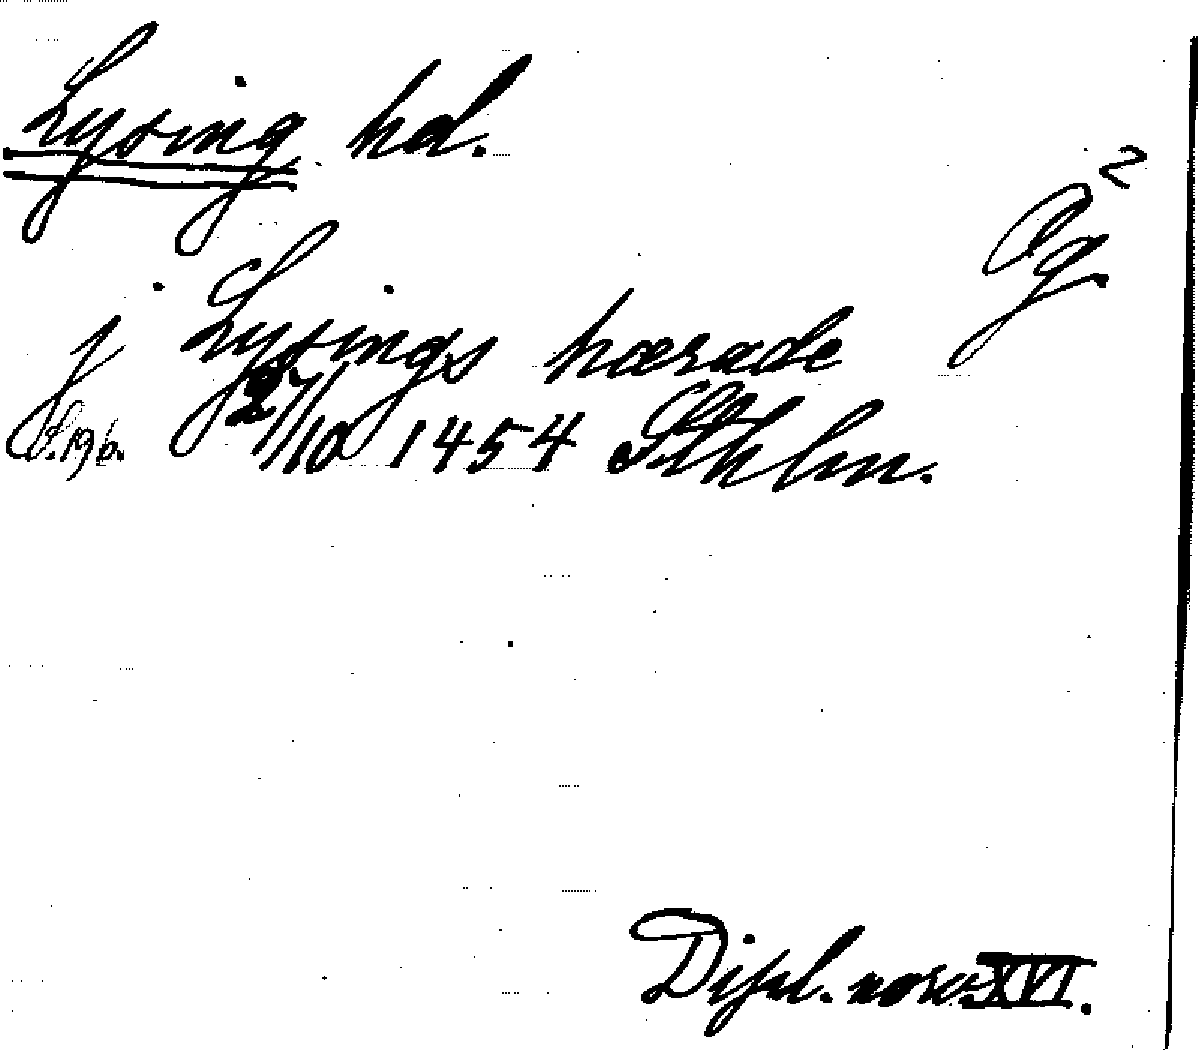 Lysing hd.
Ög. 2
j Lysings hærade
S. 196. 27/10 1454 Sthlm.
Dipl. norv. XVI.